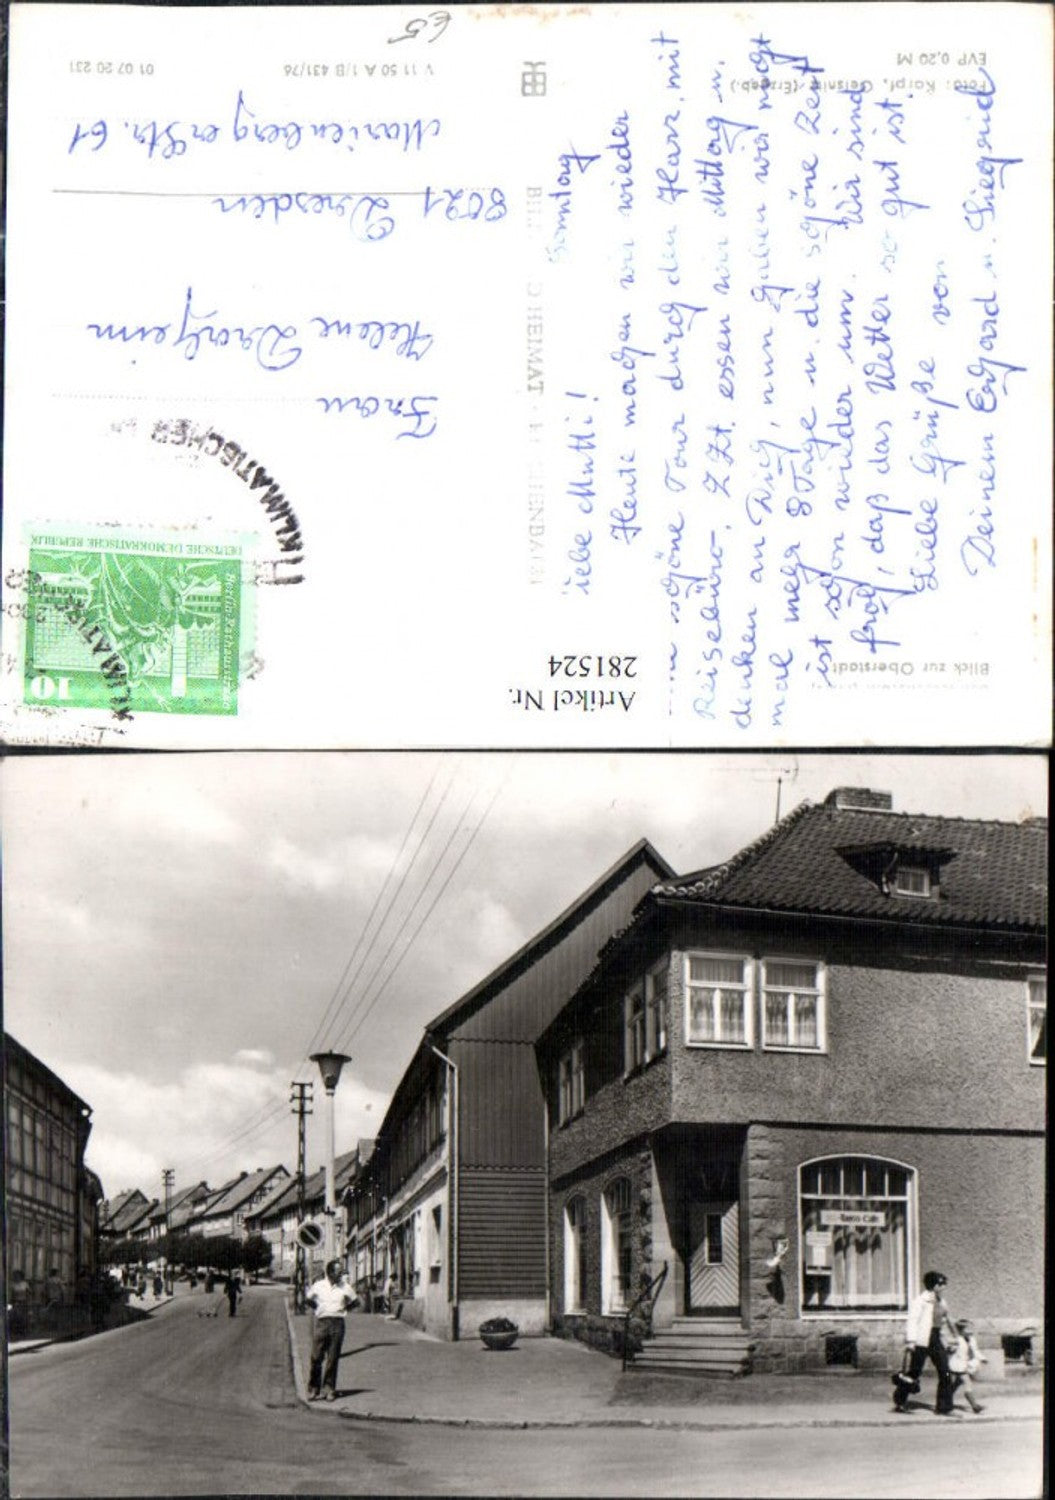 Blick zur Oberstadt
Foto: Karpf, Geisnitz (Erzgeb.)
EVP 0,20 M
Sonntag
iebe Mutti!
Heute machen wir wieder
schöne Tour durch den Harz, mit
Reisebüro. Z. Zt. essen wir Mittag u.
denken an Dich, nun haben wir noch
mal mehr 8 Tage u. die schöne Zeit
ist schon wieder um. Wir sind
froh, daß das Wetter so gut ist.
Liebe Grüße von
Deinem Erhard u. Siegrid
BILD HEIMAT REICHENBACH
V 11 50 A 1/B 431/76
01 07 20 231
€5
Frau
Helene Dralheim
8021 Dresden
Marienberger Str. 61
DEUTSCHE DEMOKRATISCHE REPUBLIK
Berlin, Rathausstraße
10
KLIMATISCHER
KLIMATISCHER
Artikel Nr.
281524